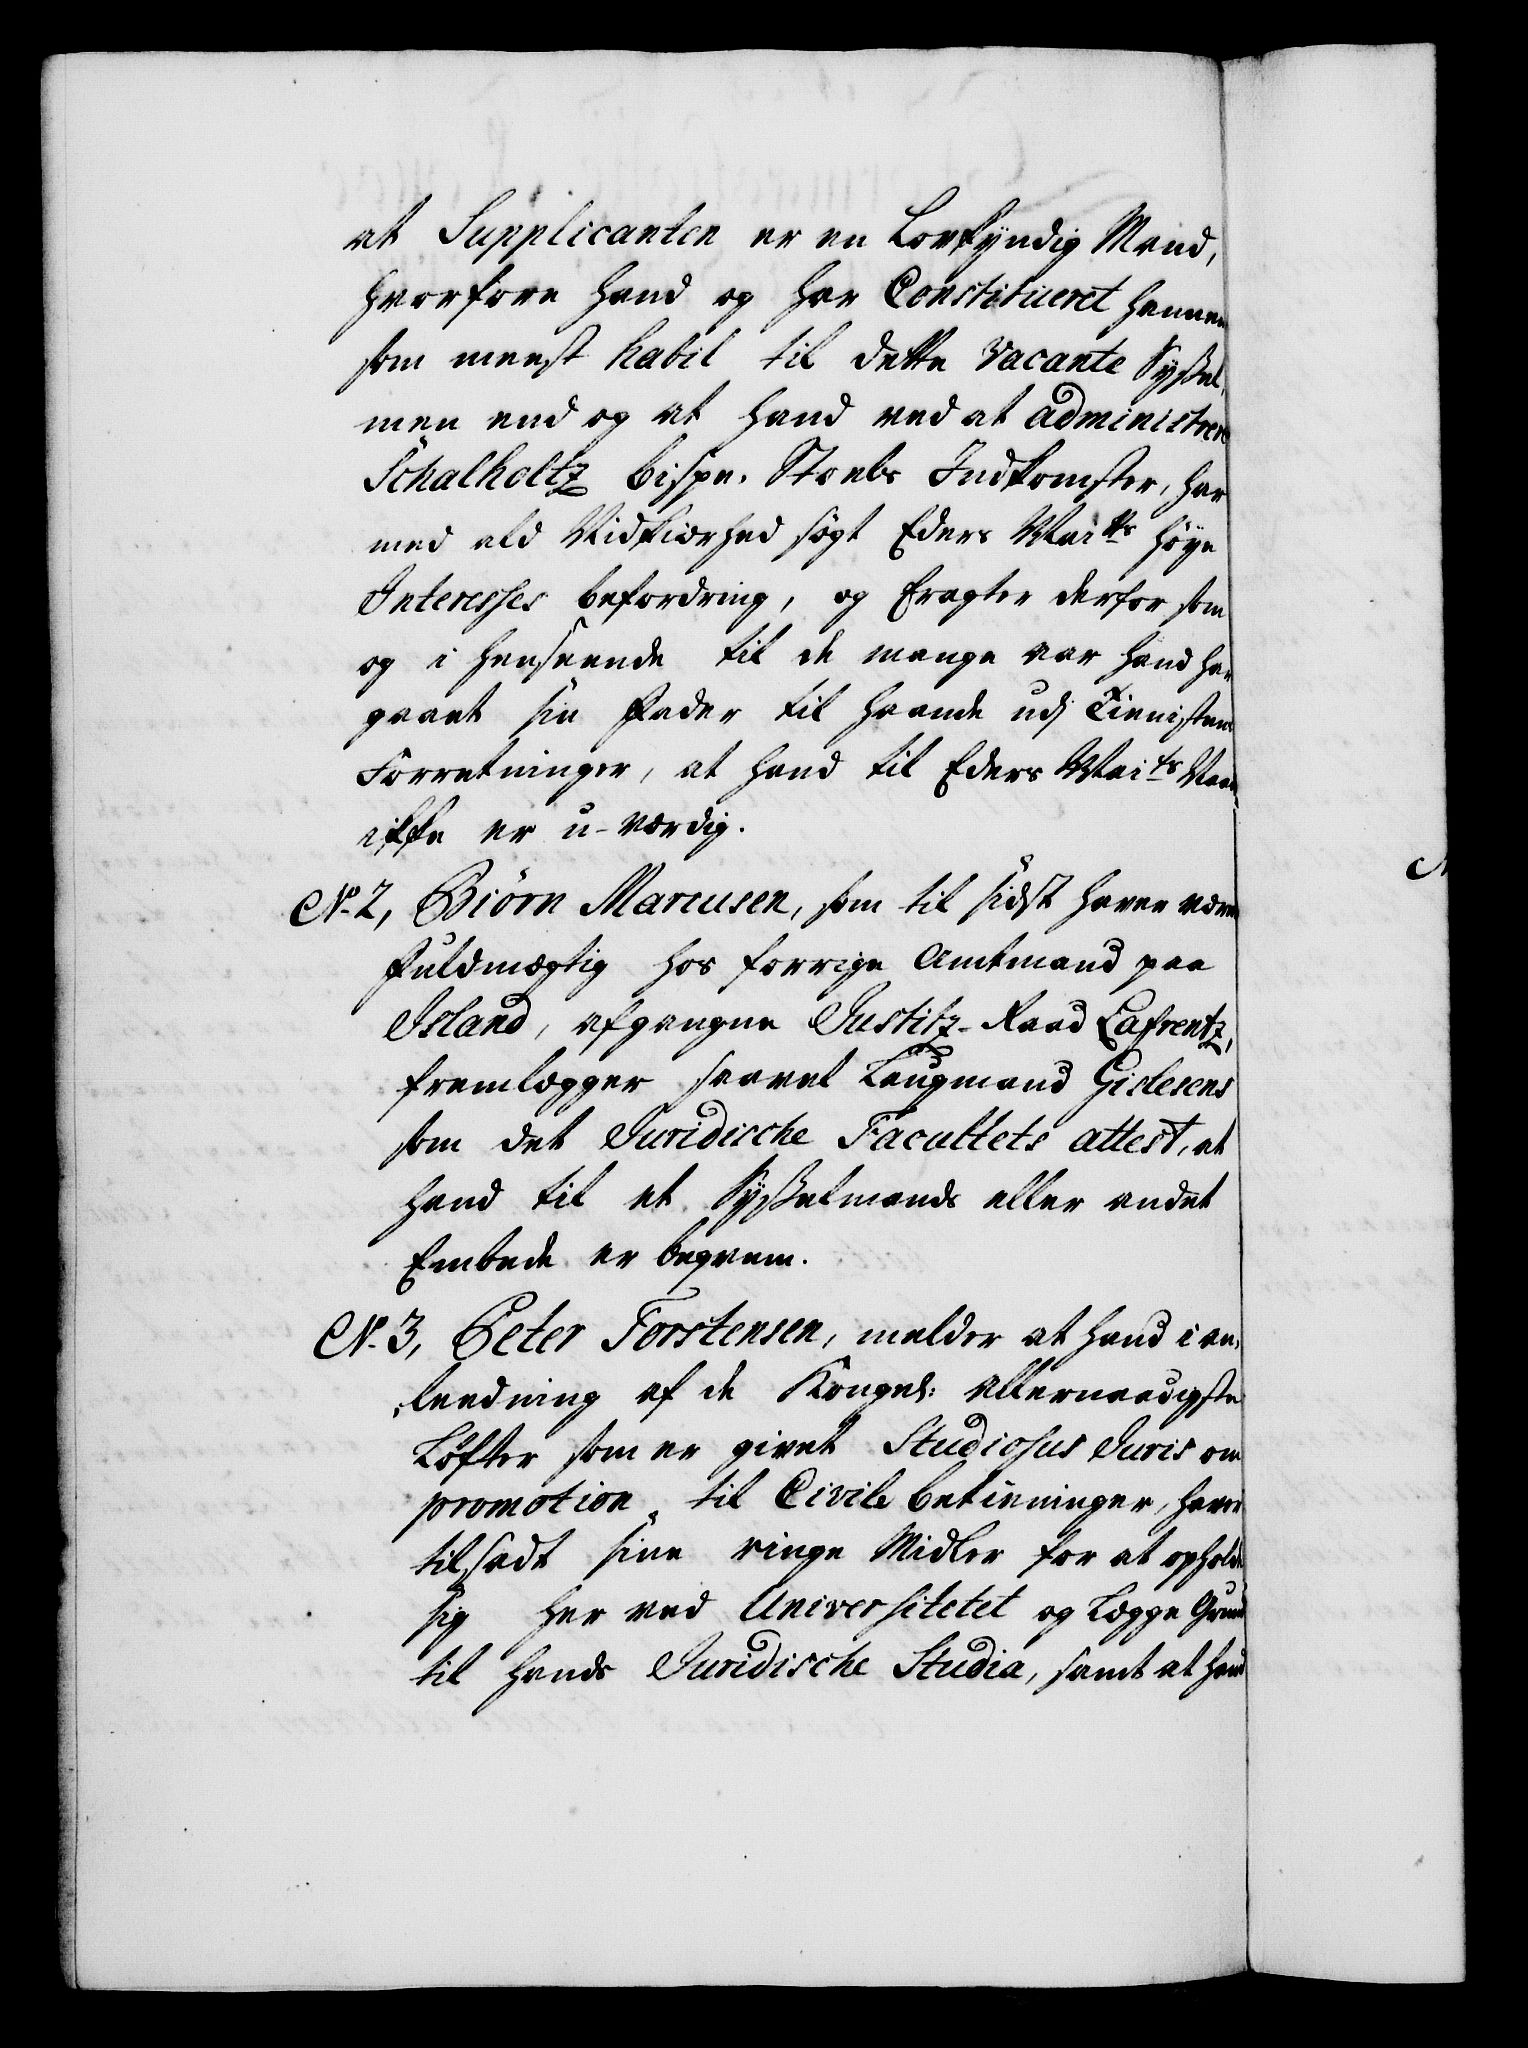 at Supplicanten er en Lovkyndig Mand,
hvorfore hand og har Constitueret hannem
som meest habil til dette vacante Syßel,
men end og at hand ved at administrere
Schalholtz bispe-Stoels Indkomster, har
med ald Vidkiærhed søgt Eders Maits høye
Interesses befordring, og Eragter derfor som
og i henseende til de mange aar hand har
gaaet sin Fader til haande udj Tienistens
Forretninger, at hand til Eders Maits
ikke er u-værdig.
No. 2, Biörn Marcusen, som til sidst haver været
Fuldmægtig hos forrige Amtmand paa
Island, afgangne Justitz-Raad Lafrentz,
fremlægger saavel Laugmand Gislesens
som det Juridische Facultets attest, at
hand til et Syßelmands eller andet
Embede er beqvem.
No. 3, Peter Torstensen, melder at hand i an-
leedning af de Kongel: allernaadigste
Løfter som er givet Studiosus Juris om
promotion til Civile betieninger, haver
tilsadt sine ringe Midler for at opholde
sig her ved Universitetet og Lægge Grund
til hands Juridische Studia, samt at hand